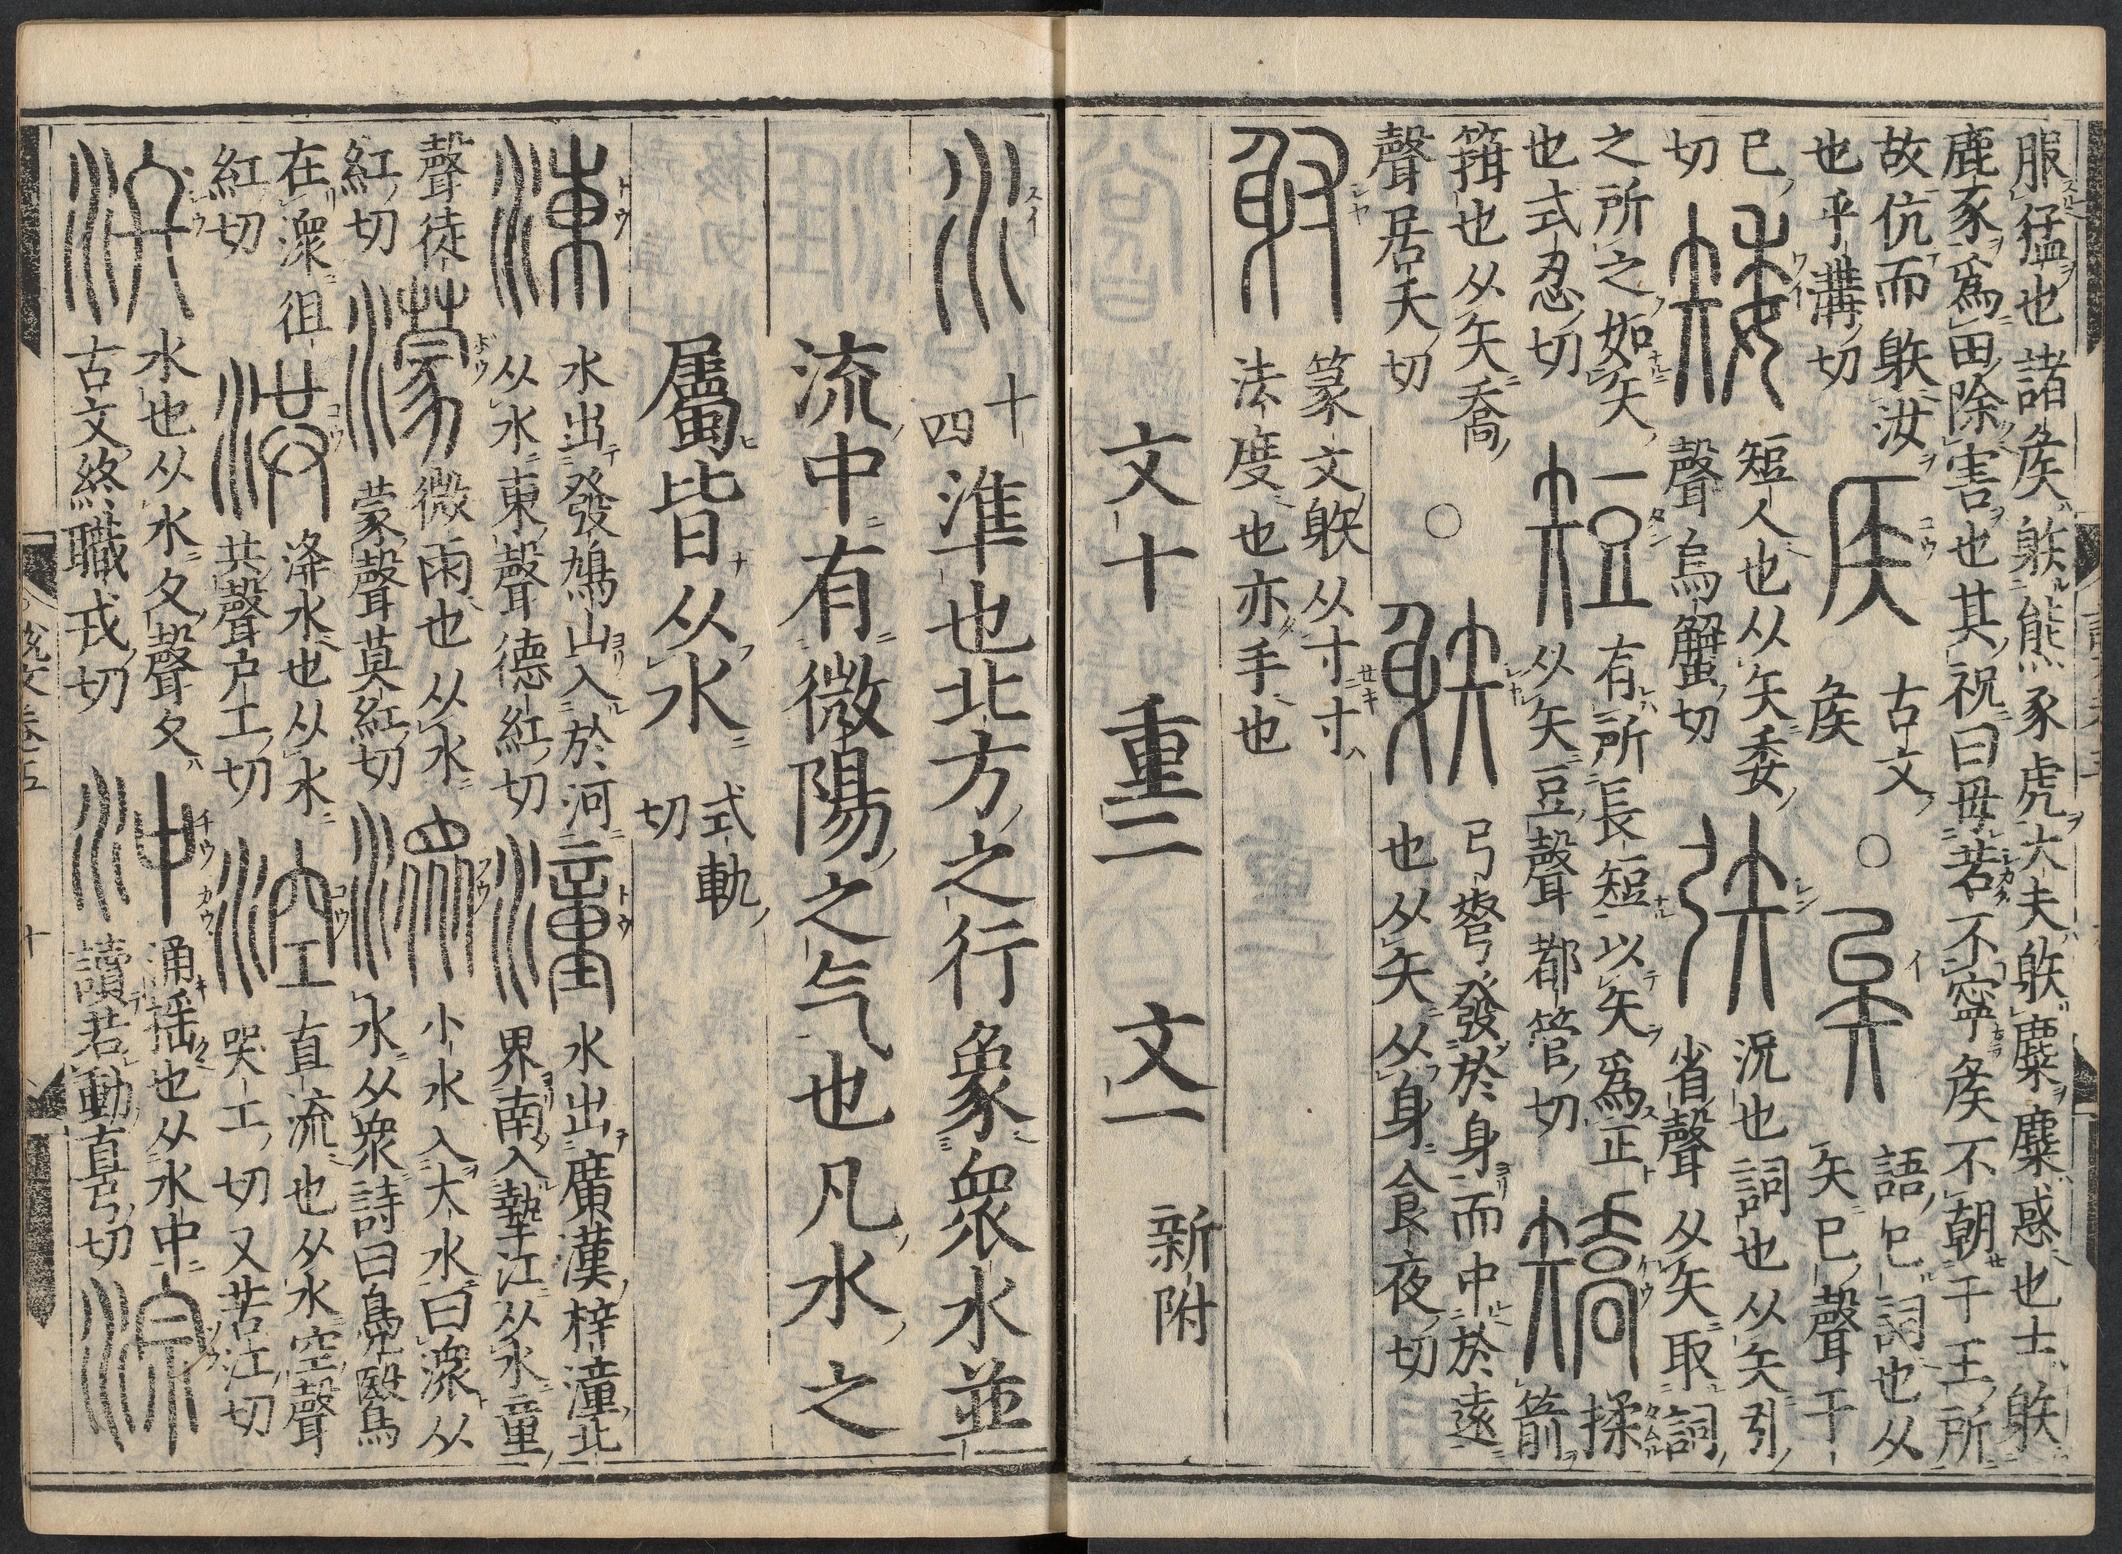 服猛也諸矦䠶熊豕虎大夫䠶麋麋惑也士䠶
鹿豕爲田除害也其祝曰毋若不寧矦不朝于王所
故伉而䠶汝 古文 語已詞也从
也乎溝切 矦 ○ 矢巳聲于
巳 短人也从矢委 況也詞也从矢引
切 聲烏蟹切 省聲从矢取詞
之所之如矢 有所長短以矢爲正 揉
也式忍切 从矢豆聲都管切 箭
箝也从矢喬 ○ 弓弩發於身而中於遠
聲居夭切 也从矢从身食夜切
篆文䠶从寸寸
法度也亦手也
文十 重二 文一 新附
水 十四 準也北方之行象衆水並
流中有微陽之气也凡水之
屬皆从水 式軌切
涷 水出發鳩山入於河 潼 水出廣漢梓潼北
从水東聲德紅切 界南入墊江从水童
聲徒 濛 微雨也从水 潨 小水入大水曰潨从
紅切 蒙聲莫紅切 水从衆詩曰鳧鷖
在潨徂 洪 洚水也从水 涳 直流也从水空聲
紅切 共聲户工切 哭工切又苦江切
水也从水夂聲夂 沖 涌揺也从水中
古文終職戎切 讀若動直弓切 淙
說文卷五
十